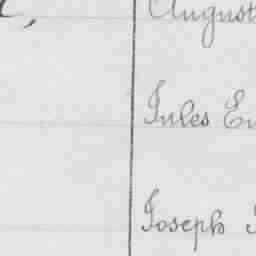 August
Jules Eu
Joseph